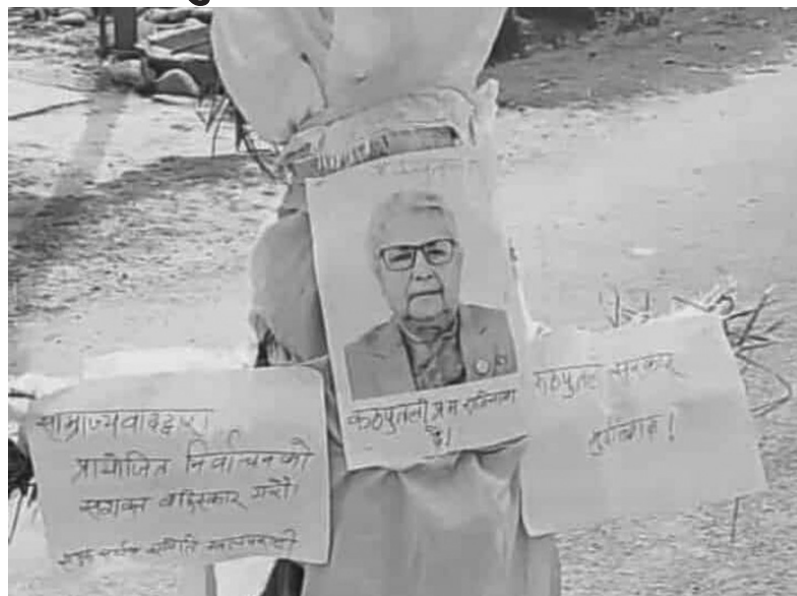 साम्राज्यवादद्वारा
प्रायोजित निर्वाचनको
सशक्त बहिस्कार गरौं।
संयुक्त संघर्ष समिति
कठपुतली प्र म राजिनामा
दे।
कठपुतली सरकार
मुर्दावाद!